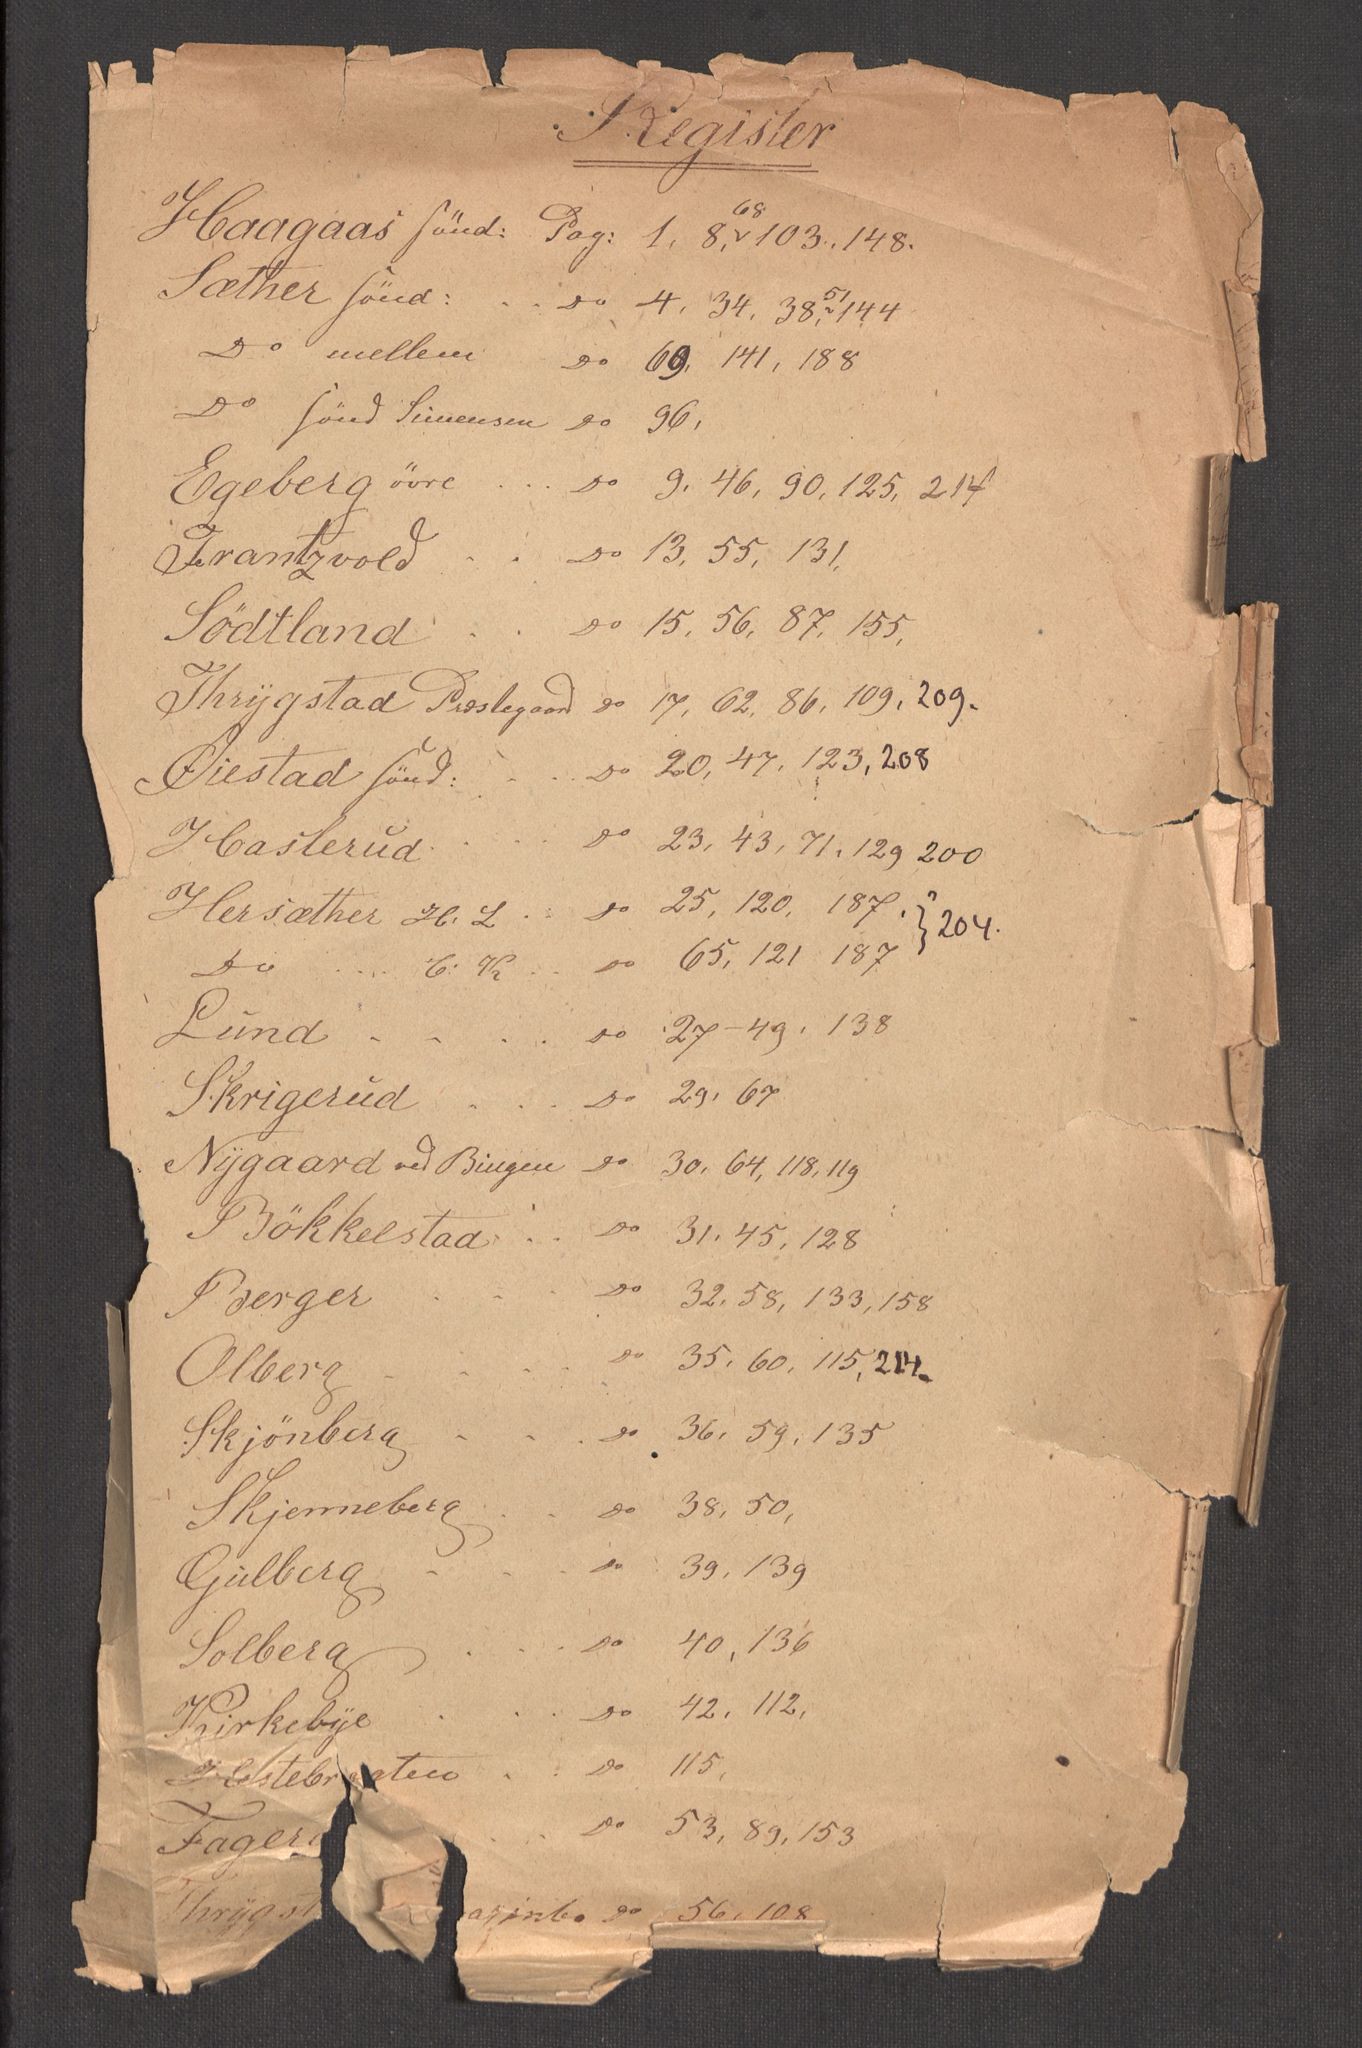 Register
Haagaas sönd: Pag: 1, 8, 68 103, 148.
Sæther sönd: . . Do 4, 34, 38, 51 144
Do mellem Do 69, 141, 188
Do sönd Simensen Do 96,
Egeberg övre . . . Do 9, 46, 90, 125, 214
Frantzvold . . Do 13, 55, 131,
Södtland . . Do 15, 56, 87, 155,
Thrÿgstad Præstegaard Do 17, 62, 86, 109, 209.
Øiestad sönd: . . . Do 20, 47, 123, 208
Haslerud . . . . Do 23, 43, 71, 129 200
Hersæther H. L . . Do 25, 120, 187, } 204.
Do . . . C. K . . Do 65, 121 187
Lund . . . . Do 27 - 49, 138
Skrigerud . . . Do 29, 67
Nÿgaard ved Bingen Do 30, 64, 118, 119
Bökkelstad . . . Do 31, 45, 128
Berger . . . Do 32, 58, 133, 158
Olberg . . . . Do 35, 60, 115, 214.
Skjönberg . . . Do 36, 59, 135
Skjenneberg . . Do 38, 50,
Gulberg . . . . Do 39, 139
Solberg . . . Do 40, 136
Kirkebÿe . . . Do 42, 112,
Hestebraaten . . Do 115,
Fager . . Do 53, 89, 153
Thrÿgst Do 56, 108